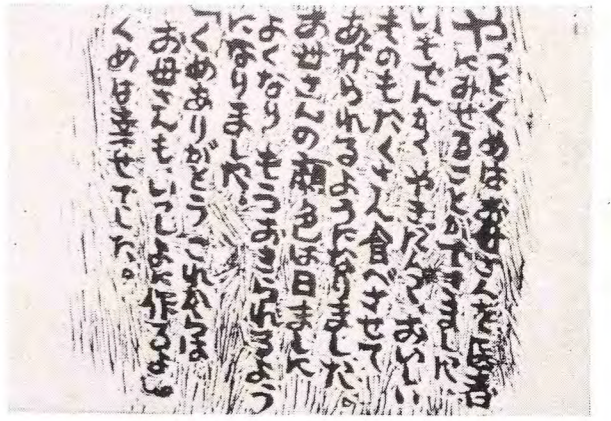 やっとくめはお母さんをお医者
にみせることができました
いもでんがくやきだんごおいしい
ものもたくさん食べさせて
あげられるようになりました。
お母さんの顔色は日ましに
よくなり もうおきられるよう
になりました。
「くめありがとう これからは
お母さんもいっしょに作るよ」
くめは幸せでした。